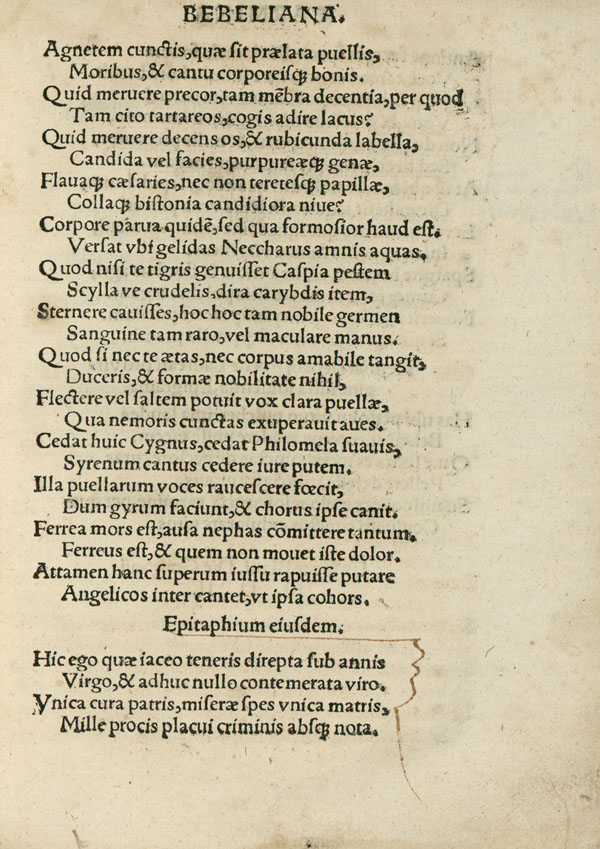 BEBELIANA.
Agnetem cunctis,quæ sit prælata puellis,
Moribus,& cantu corporeisqꝫ bonis.
Quid meruere precor,tam mẽbra decentia,per quod
Tam cito tartareos,cogis adire lacus?
Quid meruere decens os,& rubicunda labella,
Candida vel facies,purpureæqꝫ genæ,
Flauaqꝫ cæsaries,nec non teretesqꝫ papillæ,
Collaqꝫ bistonia candidiora niue?
Corpore parua quidẽ,sed qua formosior haud est.
Versat vbi gelidas Neccharus amnis aquas.
Quod nisi te tigris genuisset Caspia pestem
Scylla ve crudelis,dira carybdis item,
Sternere cauisses,hoc hoc tam nobile germen
Sanguine tam raro,vel maculare manus.
Quod si nec te ætas,nec corpus amabile tangit,
Duceris,& formæ nobilitate nihil,
Flectere vel saltem potuit vox clara puellæ,
Qua nemoris cunctas exuperauit aues.
Cedat huic Cygnus,cedat Philomela suauis,
Syrenum cantus cedere iure putem.
Illa puellarum voces raucescere fœcit,
Dum gyrum faciunt,& chorus ipse canit.
Ferrea mors est,ausa nephas cõmittere tantum.
Ferreus est,& quem non mouet iste dolor.
Attamen hanc superum iussu rapuisse putare
Angelicos inter cantet,vt ipsa cohors.
Epitaphium eiusdem.
Hic ego quæ iaceo teneris direpta sub annis
Virgo,& adhuc nullo contemerata viro.
Vnica cura patris,miseræ spes vnica matris,
Mille procis placui criminis absqꝫ nota.